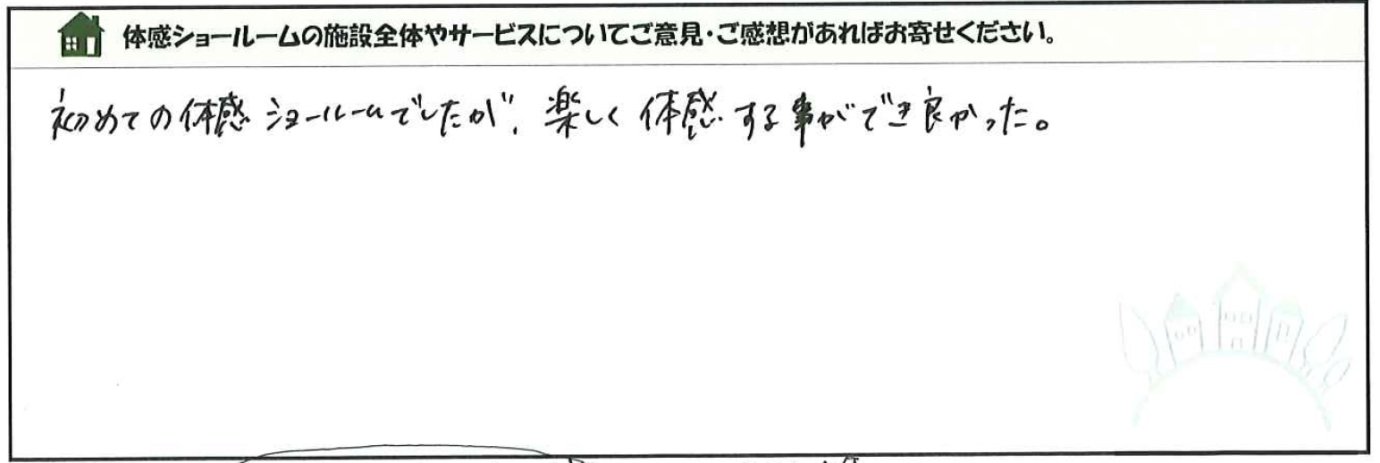 体感ショールームの施設全体やサービスについてご意見・ご感想があればお寄せください。
初めての体感ショールームでしたが、楽しく体感する事ができ良かった。